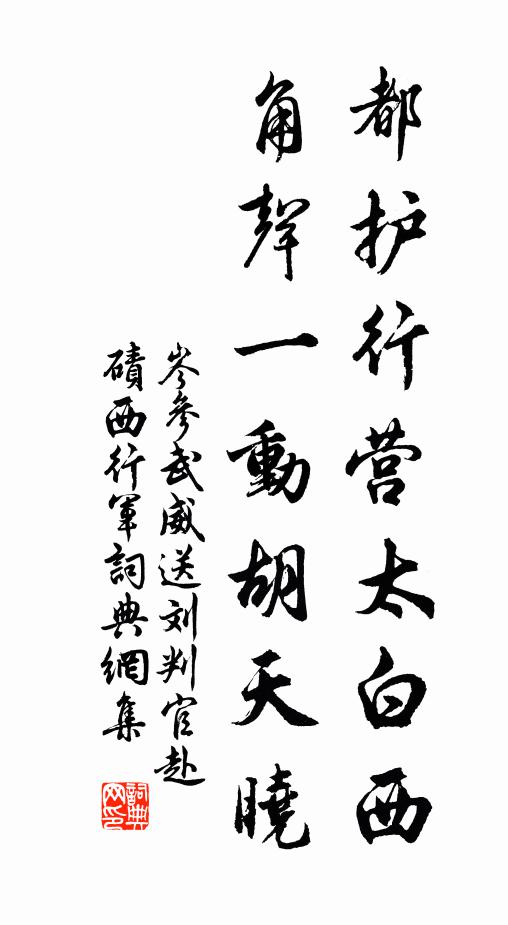 都护行营太白西
角聲一動胡天曉
岑參武威送刘判官赴
磧西行軍詞典網集
詞典
网印